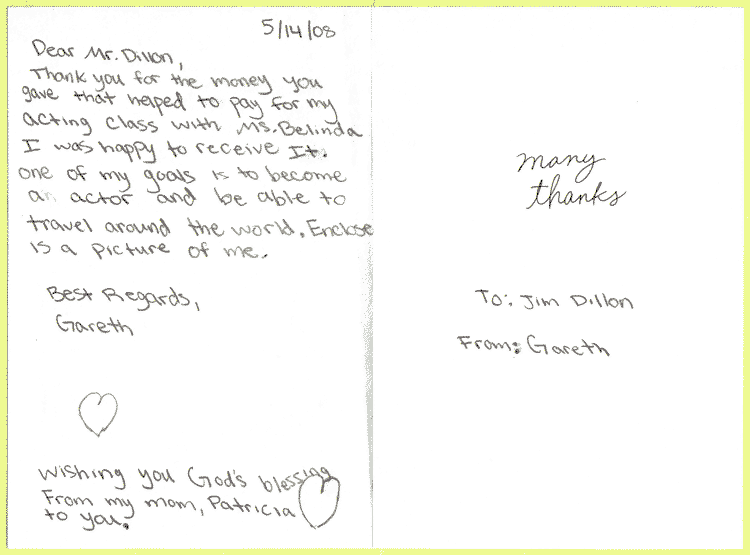 5/14/08
Dear Mr. Dillon,
Thank you for the money you
gave that helped to pay for my
acting class with Ms. Belinda
I was happy to receive It.
one of my goals is to become
an actor and be able to
travel around the world. Enclose
is a picture of me.
Best Regards,
Gareth
Wishing you God's blessing
From my mom, Patricia
to you.
many
thanks
To: Jim Dillon
From: Gareth